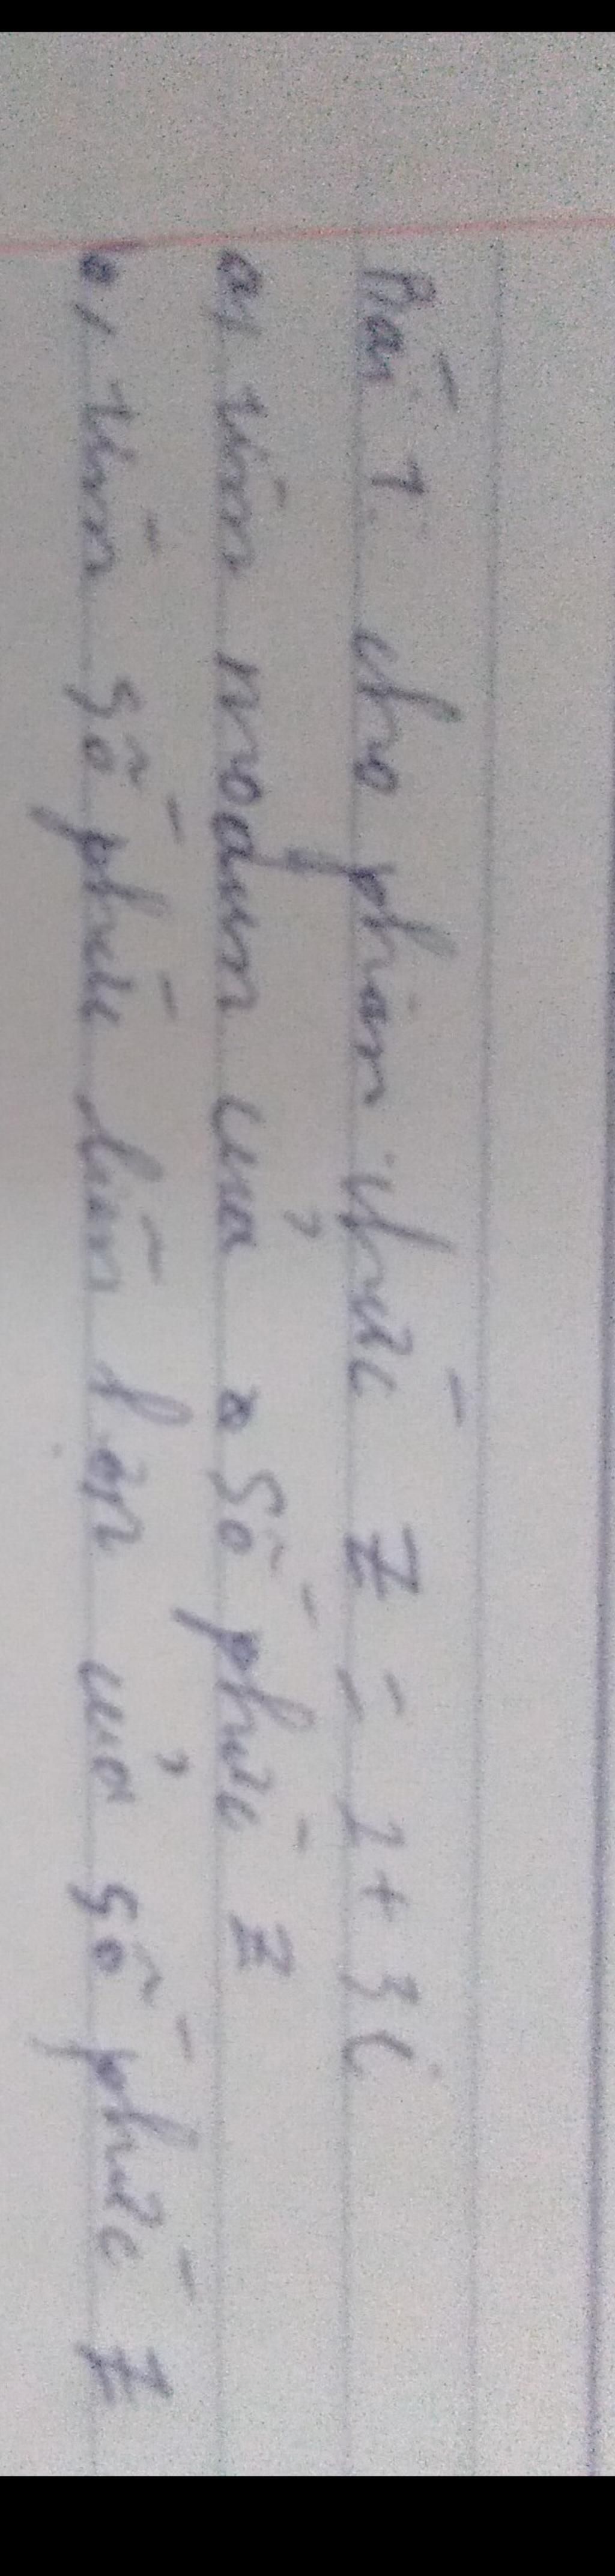 Bài 1. cho phân thức Z = 2 + 3i
a, tìm modun của số phức Z
b, tìm số phức liên hợp của số phức Z